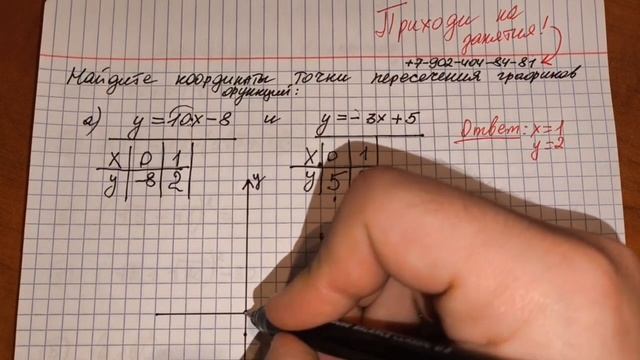 Приходи на
занятия!
+7-902-404-84-81
Найдите координаты точки пересечения графиков
функций:
а) y=10x-8 и y=-3x+5
Ответ: x=1
y=2
x 0 1
y -8 2
x 0 1
y 5
y